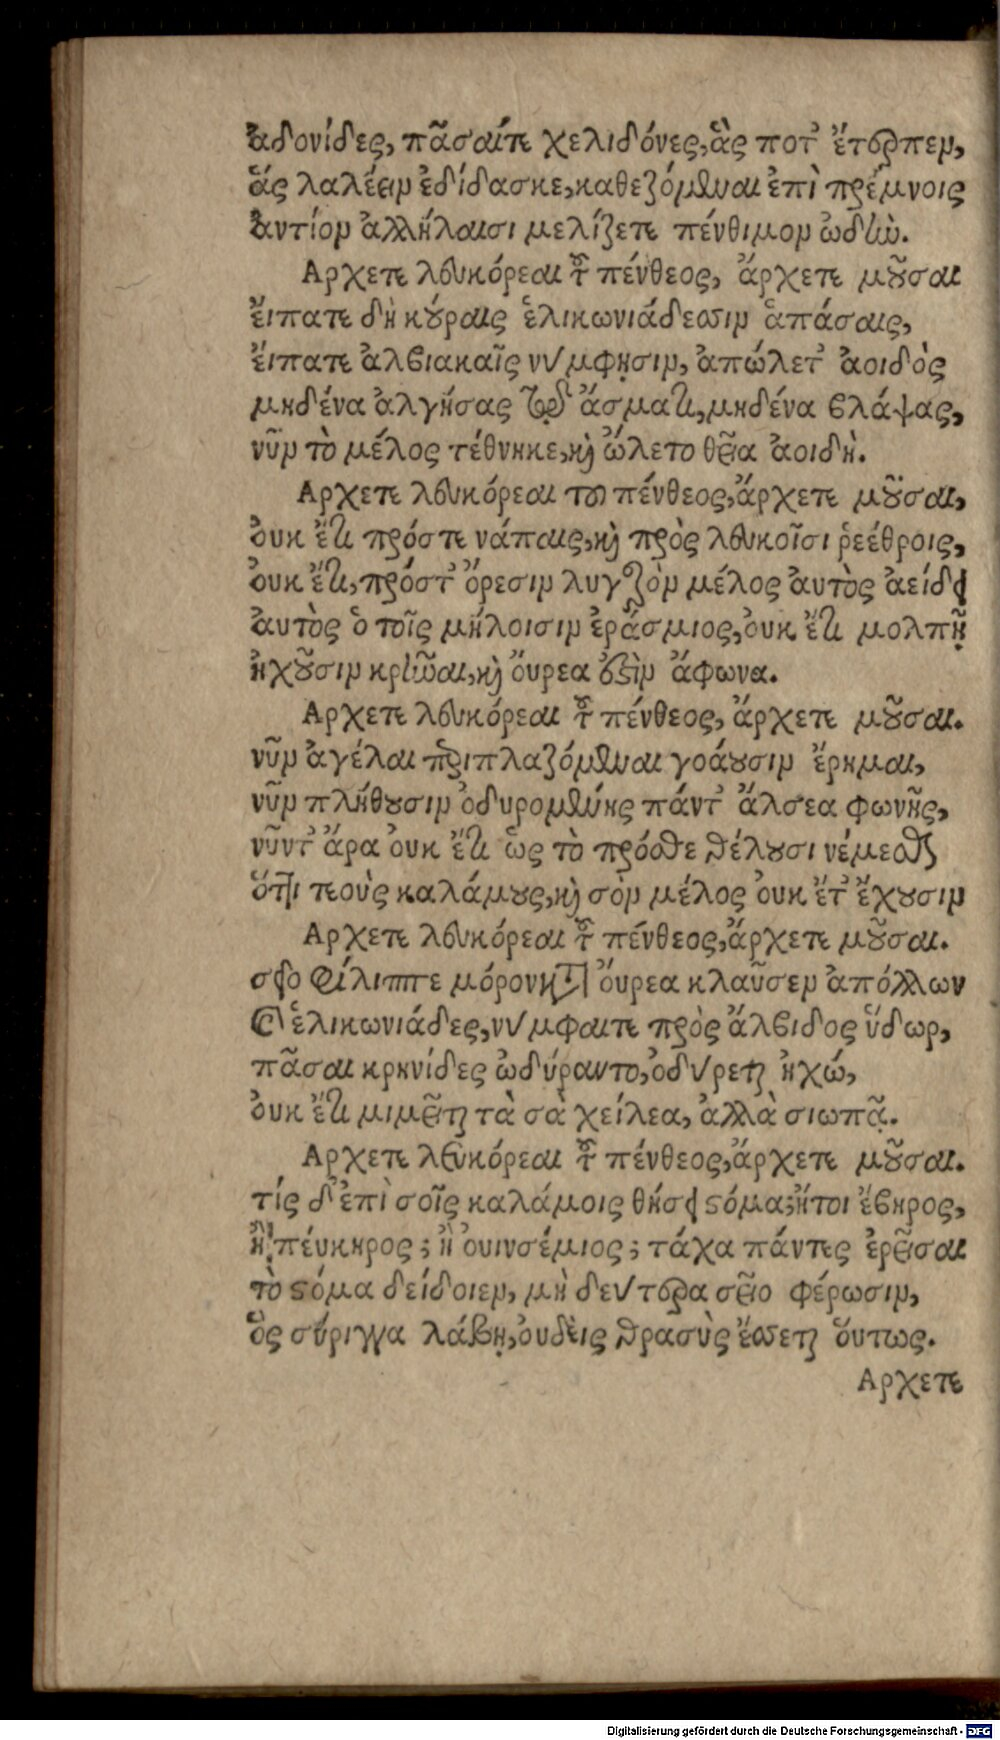 ἀδονίδες, πᾶσαίτε χελιδόνες, ἃς ποτ' ἔτερπεν,
ἅς λαλέειν ἐδίδασκε, καθεζόμεναι ἐπὶ πρέμνοις
ἀντίον ἀλλήλαισι μελίζετε πένθιμον ὠδὴν.
Αρχετε λευκόρεαι τοῦ πένθεος, ἄρχετε μοῦσαι
ἔιπατε δὴ κούραις ἑλικωνιάδεσσιν ἁπάσαις,
ἔιπατε ἀλβιακαῖς νύμφησιν, ἀπώλετ' ἀοιδὸς
μηδένα ἀλγήσας τῷδ' ἄσματι, μηδένα βλάψας,
νῦν τὸ μέλος τέθνηκε, καὶ ὤλετο θεῖα ἀοιδὴ.
Αρχετε λευκόρεαι του πένθεος, ἄρχετε μοῦσαι,
ὀυκ ἔτι πρόστε νάπαις, καὶ πρὸς λευκοῖσι ῥεέθροις,
ὀυκ ἔτι, πρόστ' ὄρεσιν λυγρὸν μέλος ἀυτὸς ἀείδει
ἀυτὸς ὁ τοῖς μήλοισιν ἐράσμιος, ὀυκ ἔτι μολπῇ
ἠχοῦσιν κρηναῖαι, καὶ ὄυρεα ἐστὶν ἄφωνα.
Αρχετε λευκόρεαι τοῦ πένθεος, ἄρχετε μοῦσαι.
νῦν ἀγέλαι περιπλαζόμεναι γοάουσιν ἔρημαι,
νῦν πλήθουσιν ὀδυρομένης πάντ' ἄλσεα φωνῆς,
νῦντ' ἄρα ὀυκ ἔτι ὥς τὸ πρόσθε θέλουσι νέμεσθαι
ὅττι τεοὺς καλάμους, καὶ σὸν μέλος ὀυκ ἔτ' ἔχουσιν
Αρχετε λευκόρεαι τοῦ πένθεος, ἄρχετε μοῦσαι.
σεῖο Φίλιππε μόρον κατ' ὄυρεα κλαῦσεν ἀπόλλων
Αἱ ἑλικωνιάδες, νύμφαιτε πρὸς ἄλβιδος ὕδωρ,
πᾶσαι κρηνίδες ὠδύραντο, ὀδύρεται ἠχώ,
ὀυκ ἔτι μιμεῖται τὰ σὰ χείλεα, ἀλλὰ σιωπᾷ.
Αρχετε λευκόρεαι τοῦ πένθεος, ἄρχετε μοῦσαι.
τίς δ' ἐπὶ σοῖς καλάμοις θήσει στόμα; ἤτοι ἔβηρος,
ἢ πέυκηρος; ἢ ὀυινσέμιος; τάχα πάντες ἐρεῖσαι
τὸ στόμα δείδοιεν, μὴ δεύτερα σεῖο φέρωσιν,
ὃς σύριγγα λάβῃ, ὀυδεὶς θρασὺς ἔσσεται ὅυτως.
Αρχετε
Digitalisierung gefördert durch die Deutsche Forschungsgemeinschaft - DFG